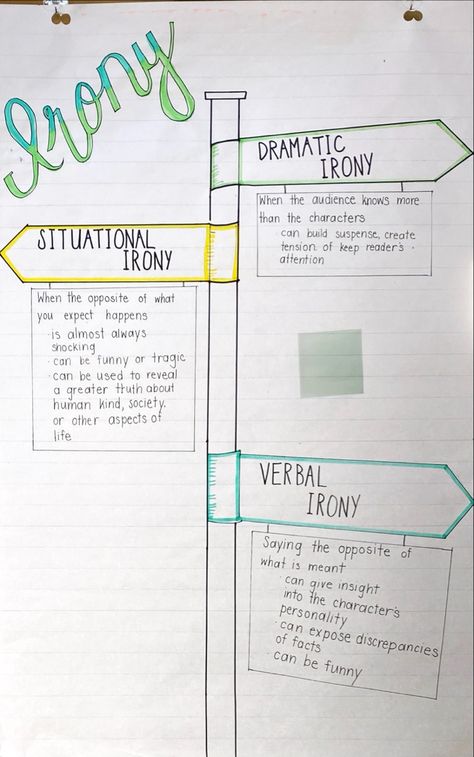 Irony
DRAMATIC
IRONY
When the audience knows more
than the characters
· can build suspense, create
tension of keep reader's ·
attention
SITUATIONAL
IRONY
When the opposite of what
you expect happens
· is almost always
shocking
· can be funny or tragic
· can be used to reveal
a greater truth about
human kind, society.
or other aspects of
life
VERBAL
IRONY
Saying the opposite of
what is meant
· can give insight
into the character's
personality
· can expose discrepancies
of facts
· can be funny